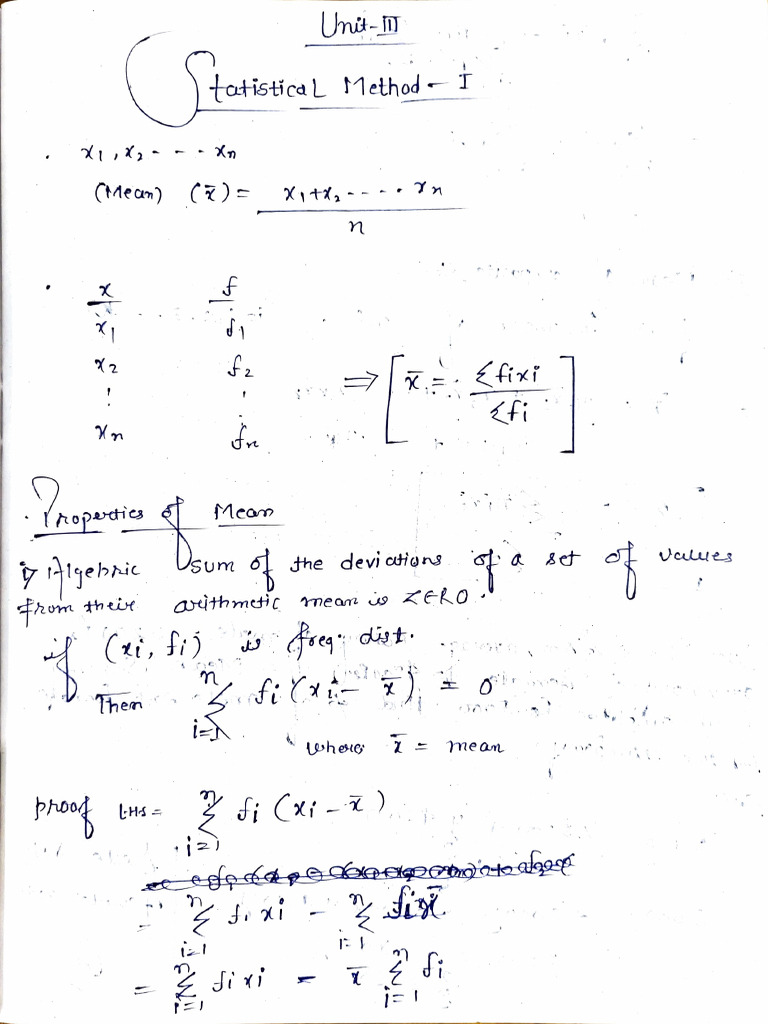 Unit-III
Statistical Method - I
. x1, x2 - - - - xn
(Mean) (x̄) = x1+x2 - - - - · xn / n
. x f
x1 f1
x2 f2
⋮ ⋮
xn fn
⇒ [ x̄ = Σfixi / Σfi ]
. Properties of Mean
i) Algebric sum of the deviations of a set of values
from their arithmetic mean is ZERO.
if (xi, fi) is freq. dist.
. Then Σ_{i=1}^{n} fi (xi - x̄) = 0
where x̄ = mean
proof LHS = Σ_{i=1}^{n} fi (xi - x̄)
= Σ_{i=1}^{n} fi xi - Σ_{i=1}^{n} fi x̄
= Σ_{i=1}^{n} fi xi - x̄ Σ_{i=1}^{n} fi